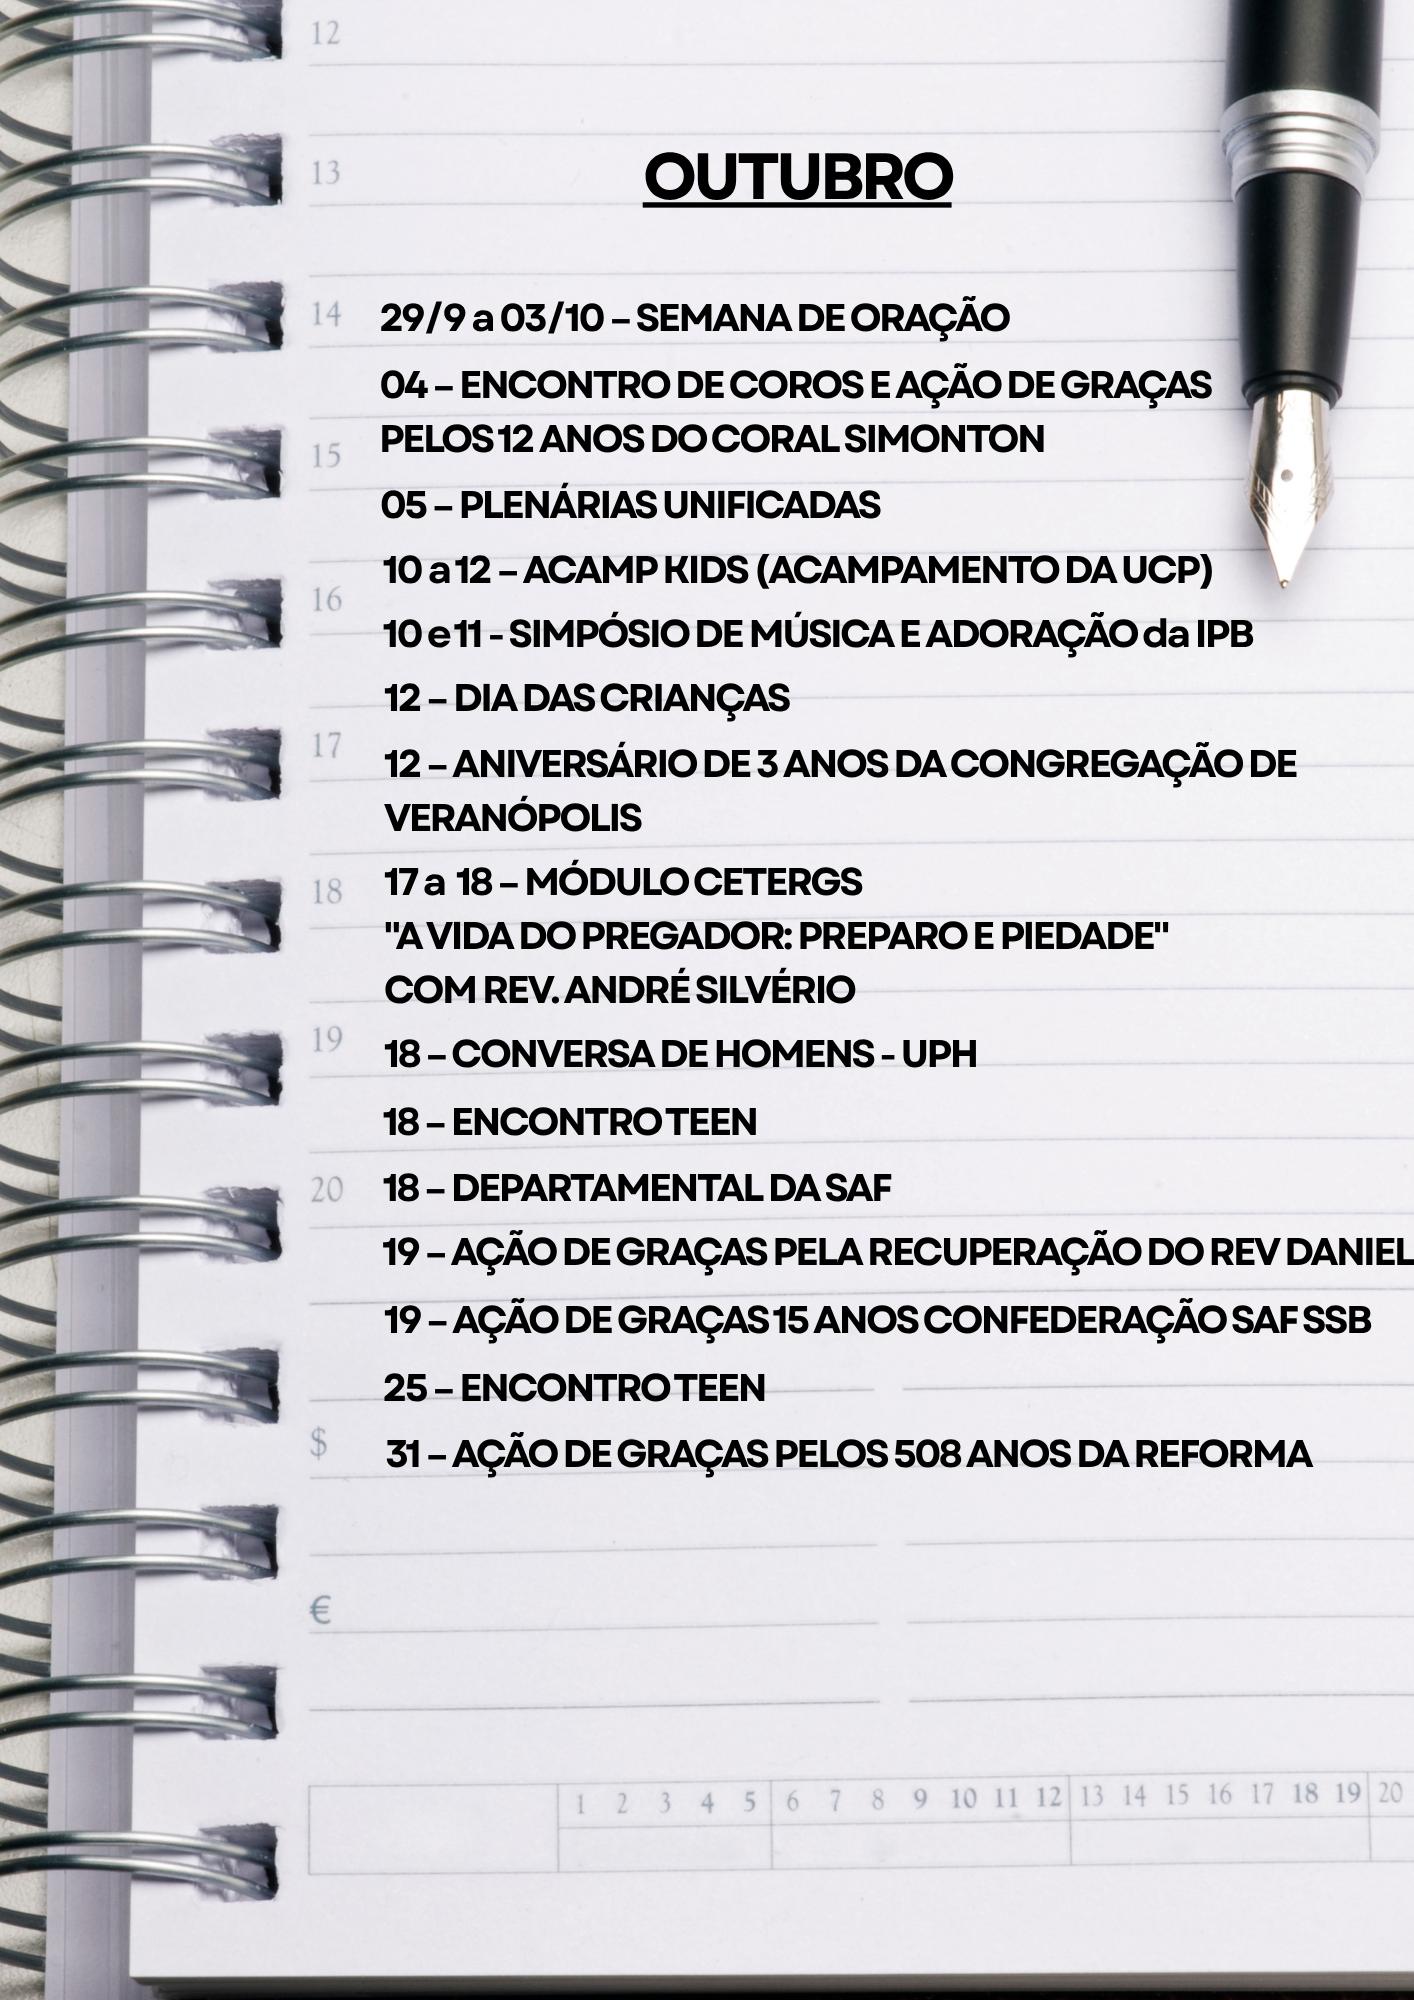 12
13
OUTUBRO
14
29/9 a 03/10 – SEMANA DE ORAÇÃO
04 – ENCONTRO DE COROS E AÇÃO DE GRAÇAS
PELOS 12 ANOS DO CORAL SIMONTON
15
05 – PLENÁRIAS UNIFICADAS
10 a 12 – ACAMP KIDS (ACAMPAMENTO DA UCP)
16
10 e 11 - SIMPÓSIO DE MÚSICA E ADORAÇÃO da IPB
12 – DIA DAS CRIANÇAS
17
12 – ANIVERSÁRIO DE 3 ANOS DA CONGREGAÇÃO DE
VERANÓPOLIS
18
17 a 18 – MÓDULO CETERGS
"A VIDA DO PREGADOR: PREPARO E PIEDADE"
COM REV. ANDRÉ SILVÉRIO
19
18 – CONVERSA DE HOMENS - UPH
18 – ENCONTRO TEEN
20
18 – DEPARTAMENTAL DA SAF
19 – AÇÃO DE GRAÇAS PELA RECUPERAÇÃO DO REV DANIEL
19 – AÇÃO DE GRAÇAS 15 ANOS CONFEDERAÇÃO SAF SSB
25 – ENCONTRO TEEN
$
31 – AÇÃO DE GRAÇAS PELOS 508 ANOS DA REFORMA
€
1 2 3 4 5 6 7 8 9 10 11 12 13 14 15 16 17 18 19 20